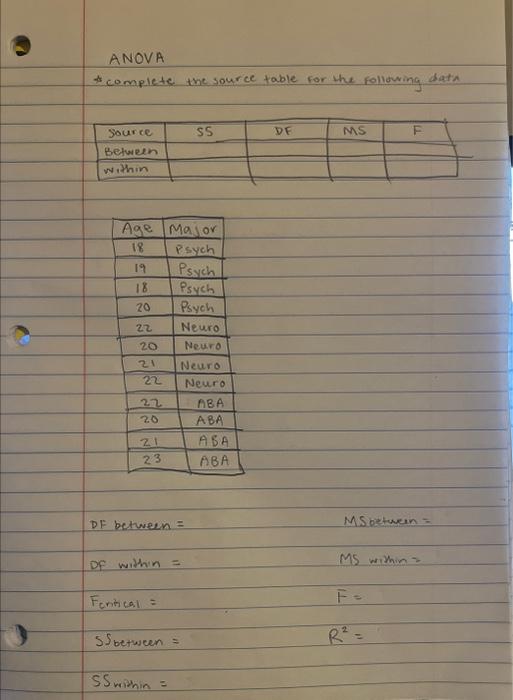 ANOVA
*complete the source table for the following data
Source SS DF MS F
Between
Within
Age Major
18 Psych
19 Psych
18 Psych
20 Psych
22 Neuro
20 Neuro
21 Neuro
22 Neuro
22 ABA
20 ABA
21 ABA
23 ABA
DF between = MS between =
DF within = MS within =
Fcritical = F =
SS between = R² =
SS within =